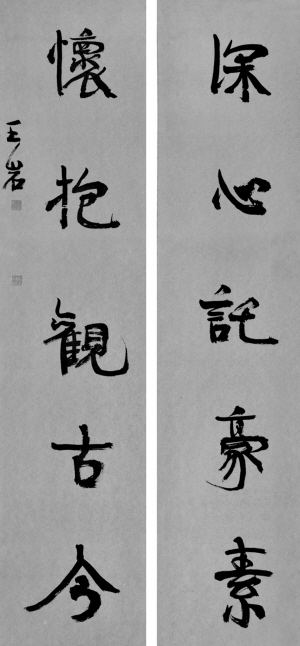 深心託豪素
懷抱觀古今
王岩